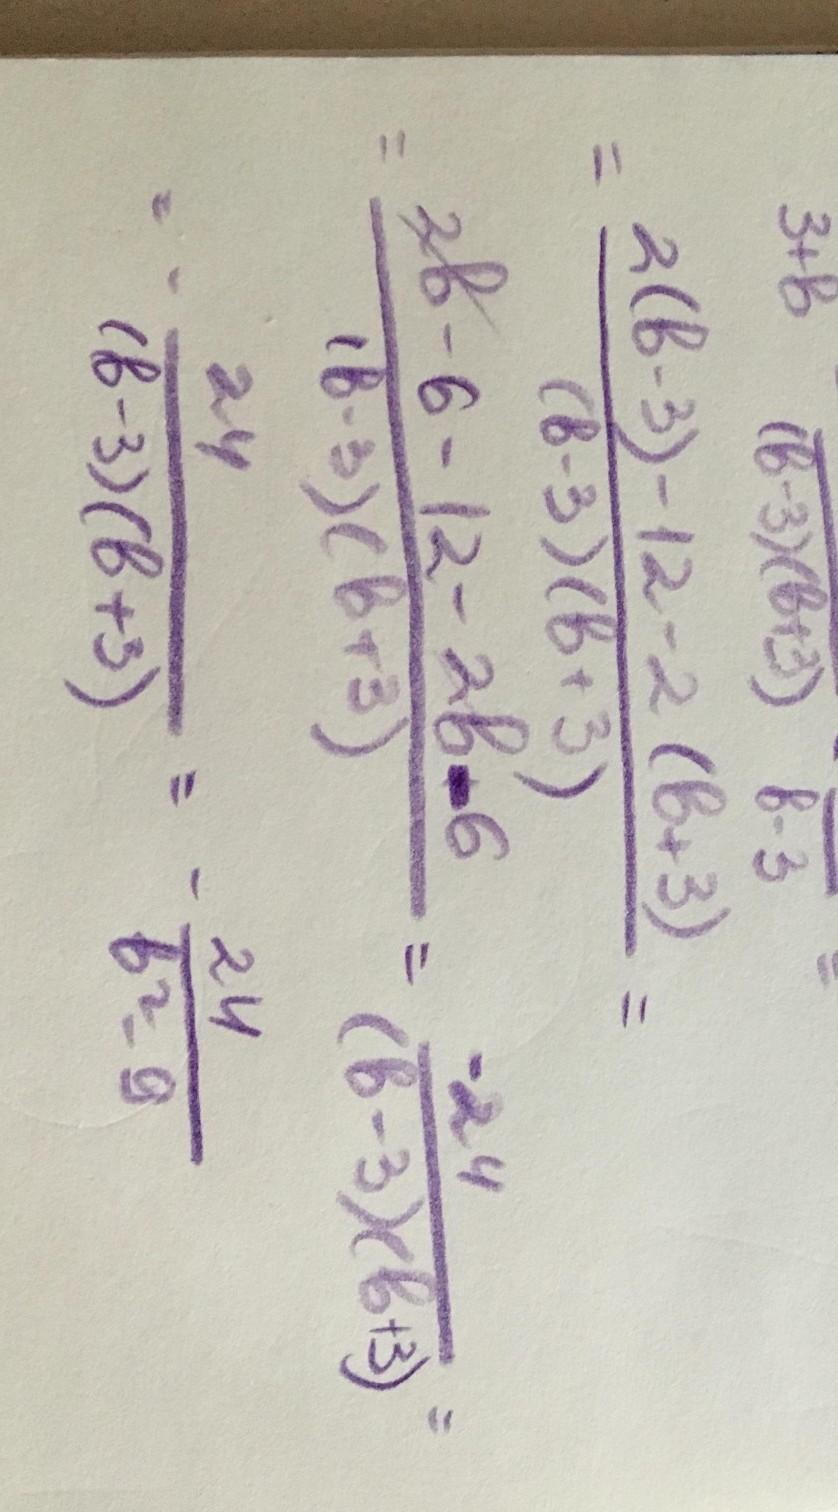 3+b - (b-3)(b+3) b-3 =
= 2(b-3)-12-2(b+3) / (b-3)(b+3) =
= 2b-6-12-2b-6 / (b-3)(b+3) = -24 / (b-3)(b+3) =
= - 24 / (b-3)(b+3) = - 24 / b²-9